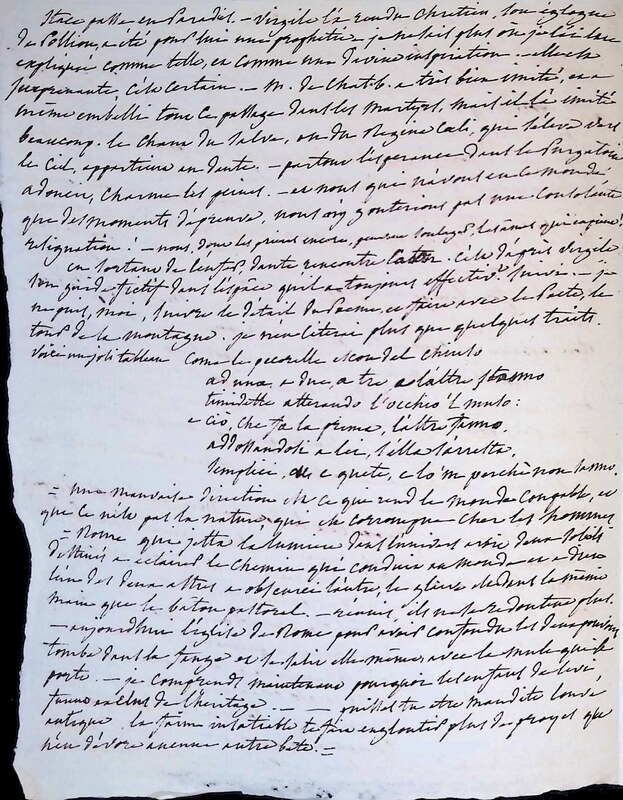 Stace passe en Paradis. – Virgile l'a rendu chrétien, son églogue
de Pollion, a été pour lui une prophétie. je ne sais plus où je l'ai lue
expliquée comme telle, et comme une divine inspiration. – elle est
surprenante, cela est certain. – M. de Chatb. a très bien imité, et a
même embelli tout ce passage dans les Martyrs, mais il l'a imité
beaucoup. le chant du Salve, ou du Regina Cœli, qui s'élève vers
le Ciel, appartient au dante. – partout l'espérance dans le Purgatoire
adoucit, charme les peines. – et nous qui n'avons en ce monde
que des moments d'épreuve, nous n'y gouterions pas une consolante
résignation! – nous, dont les prières encore, peuvent soulager, les ames qui expient!
en sortant de l'enfer, dante rencontre Caton. cela d'après Virgile
son guide fictif dans l'espace qu'il a toujours effectivt suivi. – je
ne puis, moi, suivre le détail du Poème, et faire avec le Poete, le
tour de la montagne. je n'en citerai plus que quelques traits.
voici un joli tableau Come le pecorelle escon del chiuso
ad una, a due, a tre, e l'altre stanno
timidette atterando l'occhio e'l muso:
e ciò, che fa la prima, l'altre fanno,
addossandosi a lei, s'ella s'arresta,
semplici, e quete, e lo'm perchè non sanno.
= Une mauvaise direction est ce que rend le monde coupable, et
que ce n'est pas la nature que est corrompue chez les hommes
– Rome que jetta la lumiere dans l'univers avoit deux soleils
destinés à éclairer le chemin que conduit au monde et a dieu
l'un des deux astres a obscurci l'autre, le glaive est dans la même
main que le baton pastoral. – réunis, ils ne se redoutent plus.
– aujourdhui l'église de Rome pour avoir confondu les deux pouvoirs
tombe dans la fange et se salit elle même, avec le mule qui la
porte. – je comprends maintenant pourquoi les enfans de Levi
furent exclus de l'héritage. – – puisses tu etre maudite louve
antique, la faim insatiable te fait engloutir plus de proyes que
n'en dévore aucune autre bete. =